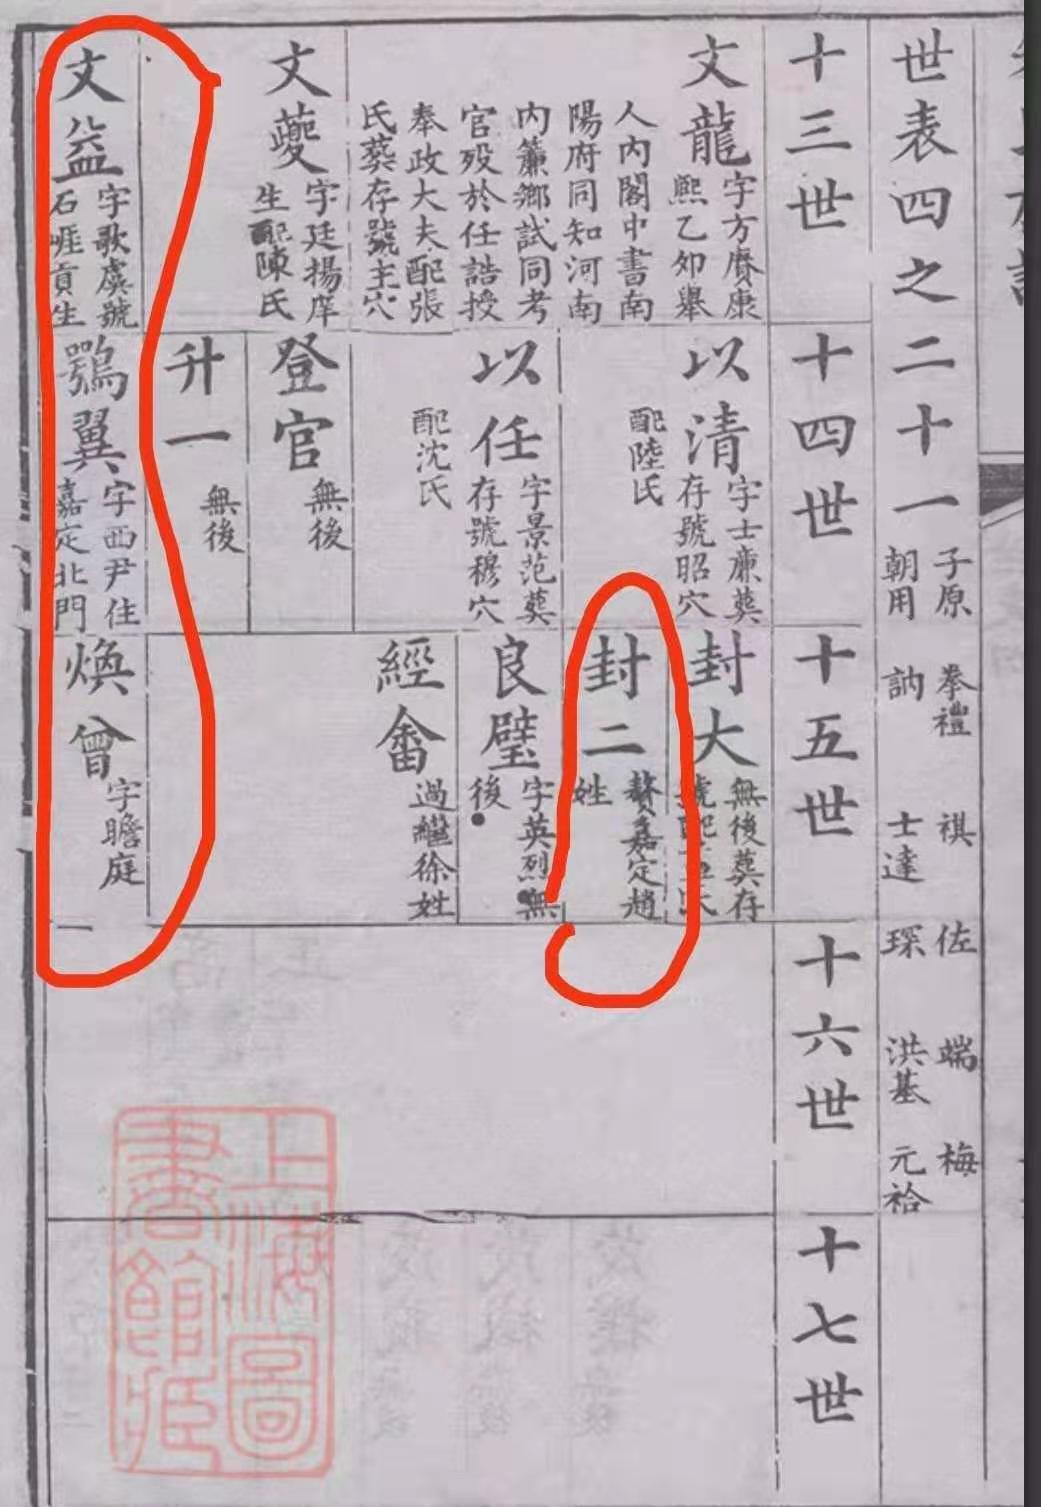 世表四之二十一
子原 拳禮 祺 佐 端 梅
朝用 訥 士達 琛 洪基 元袷
十三世
十四世
十五世
十六世
十七世
文龍
字方賡康
熙乙卯舉
人內閣中書南
陽府同知河南
內簾鄉試同考
官歿於任誥授
奉政大夫配張
氏葬存號主穴
文䕫
字廷揚庠
生配陳氏
文益
字歌虞號
石崕貢生
以清
字士廉葬
存號昭穴
配陸氏
以任
字景范葬
存號穆穴
配沈氏
登官
無後
升一
無後
鶚翼
字西尹住
嘉定北門
封大
無後葬存
封二
贅嘉定趙
姓
良璧
字英烈無
後
經畬
過繼徐姓
煥曾
字瞻庭
一
上海圖
書館藏